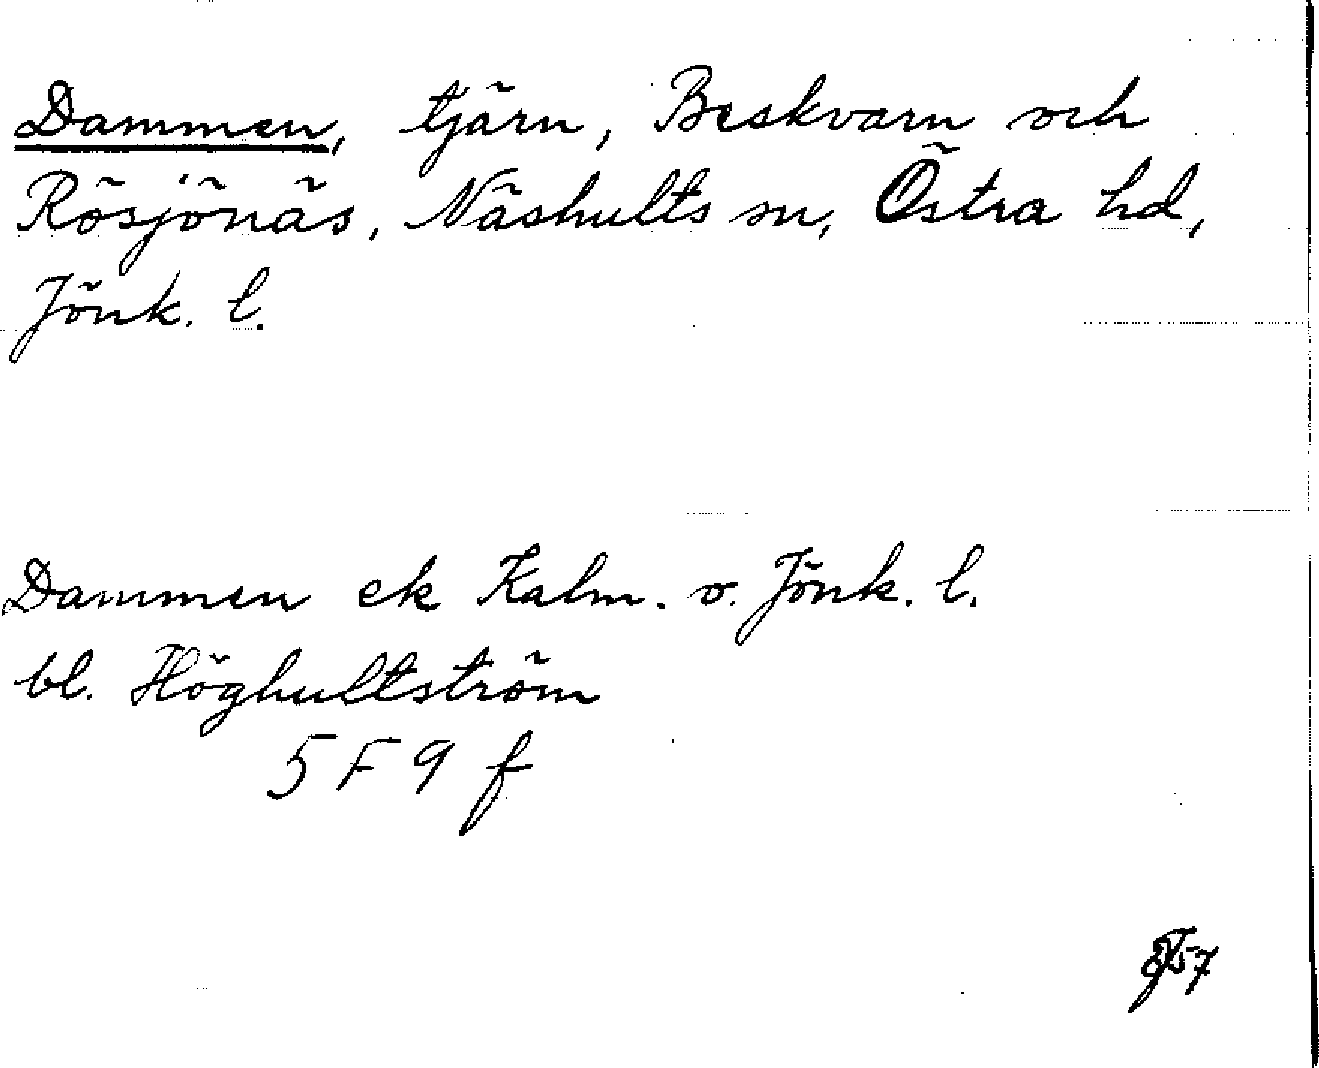 Dammen, tjärn, Beskvarn och
Rösjönäs, Näshults sn, Östra hd,
Jönk. l.
Dammen ek Kalm. o. Jönk. l.
bl. Höghultström
5 F 9 f